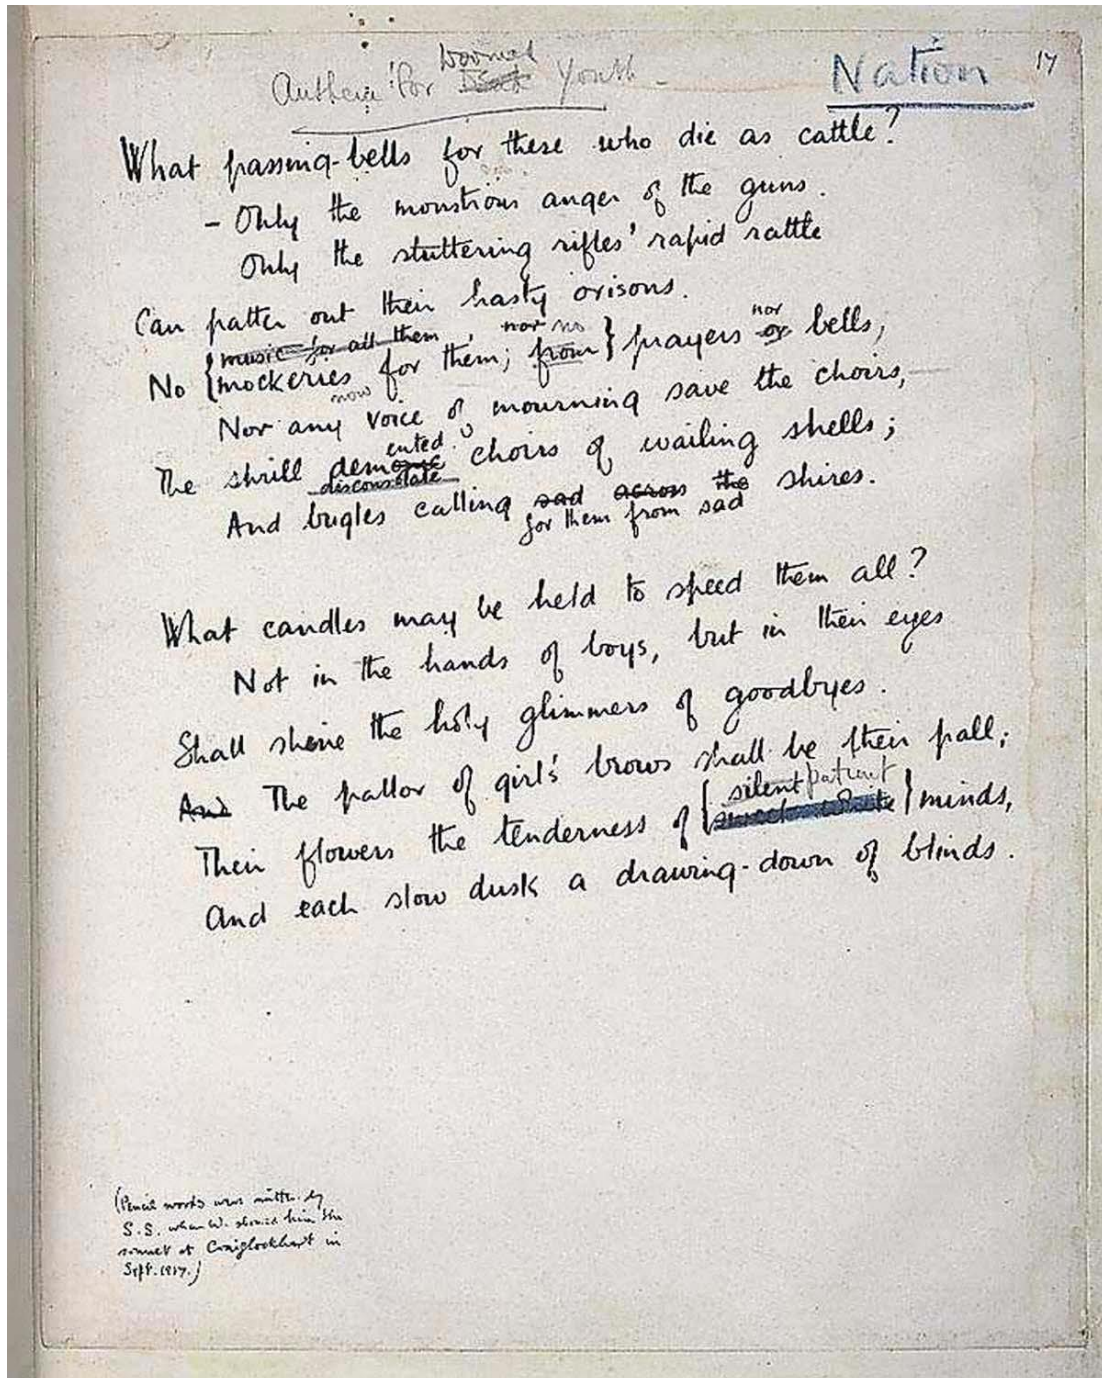 Doomed
Anthem for Dead Youth - Nation 17
What passing-bells for these who die as cattle?
- Only the monstrous anger of the guns.
Only the stuttering rifles' rapid rattle
Can patter out their hasty orisons.
music for all them, nor no nor
No {mockeries for them; from} prayers or bells,
now
Nor any voice of mourning save the choirs,
ented
The shrill demonic choirs of wailing shells;
disconsolate
And bugles calling sad across the shires.
for them from sad
What candles may be held to speed them all?
Not in the hands of boys, but in their eyes
Shall shine the holy glimmers of goodbyes.
And The pallor of girls' brows shall be their pall;
silent patient
Their flowers the tenderness of { } minds,
And each slow dusk a drawing-down of blinds.
(Pencil words were written by
S.S. when W. showed him the
sonnet at Craiglockhart in
Sept. 1917.)